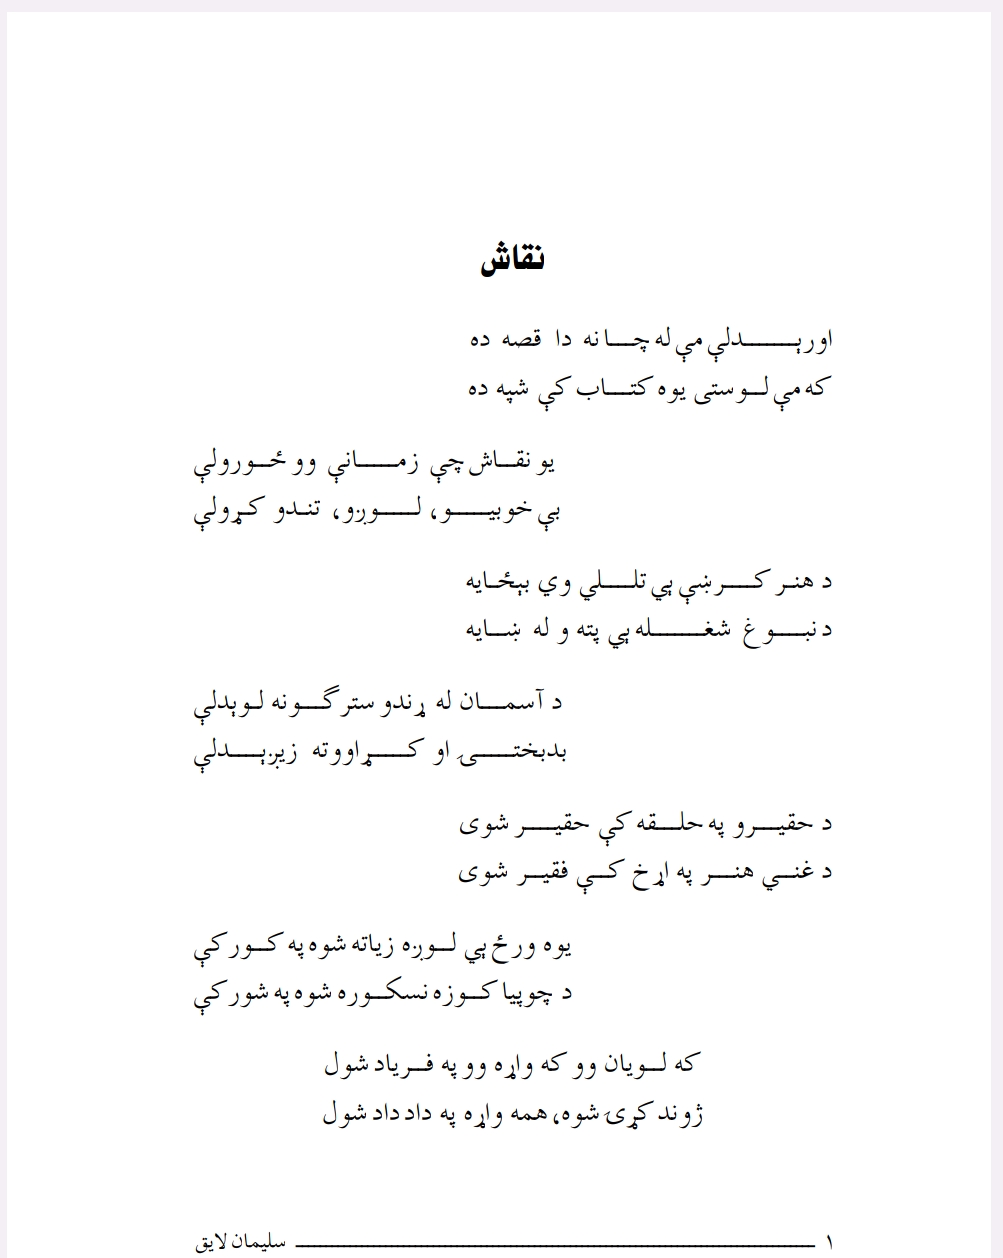 نقاش
اورېدلې مې له چا نه دا قصه ده
که مې لوستی يوه کتاب کې شپه ده
يو نقاش چې زمانې وو ځورولې
بې خوبيو، لوږو، تندو کړولې
د هنر کرښې يې تللي وي بېځايه
د نبوغ شغله يې پته و له ښايه
د آسمان له ړندو سترګونه لوېدلې
بدبختۍ او کړاوو ته زيږېدلې
د حقيرو په حلقه کې حقير شوی
د غني هنر په اړخ کې فقير شوی
يوه ورځ يې لوږه زياته شوه په کور کې
د چوپيا کوزه نسکوره شوه په شور کې
که لويان وو که واړه وو په فرياد شول
ژوند کړۍ شوه، همه واړه په داد داد شول
۱ سليمان لايق